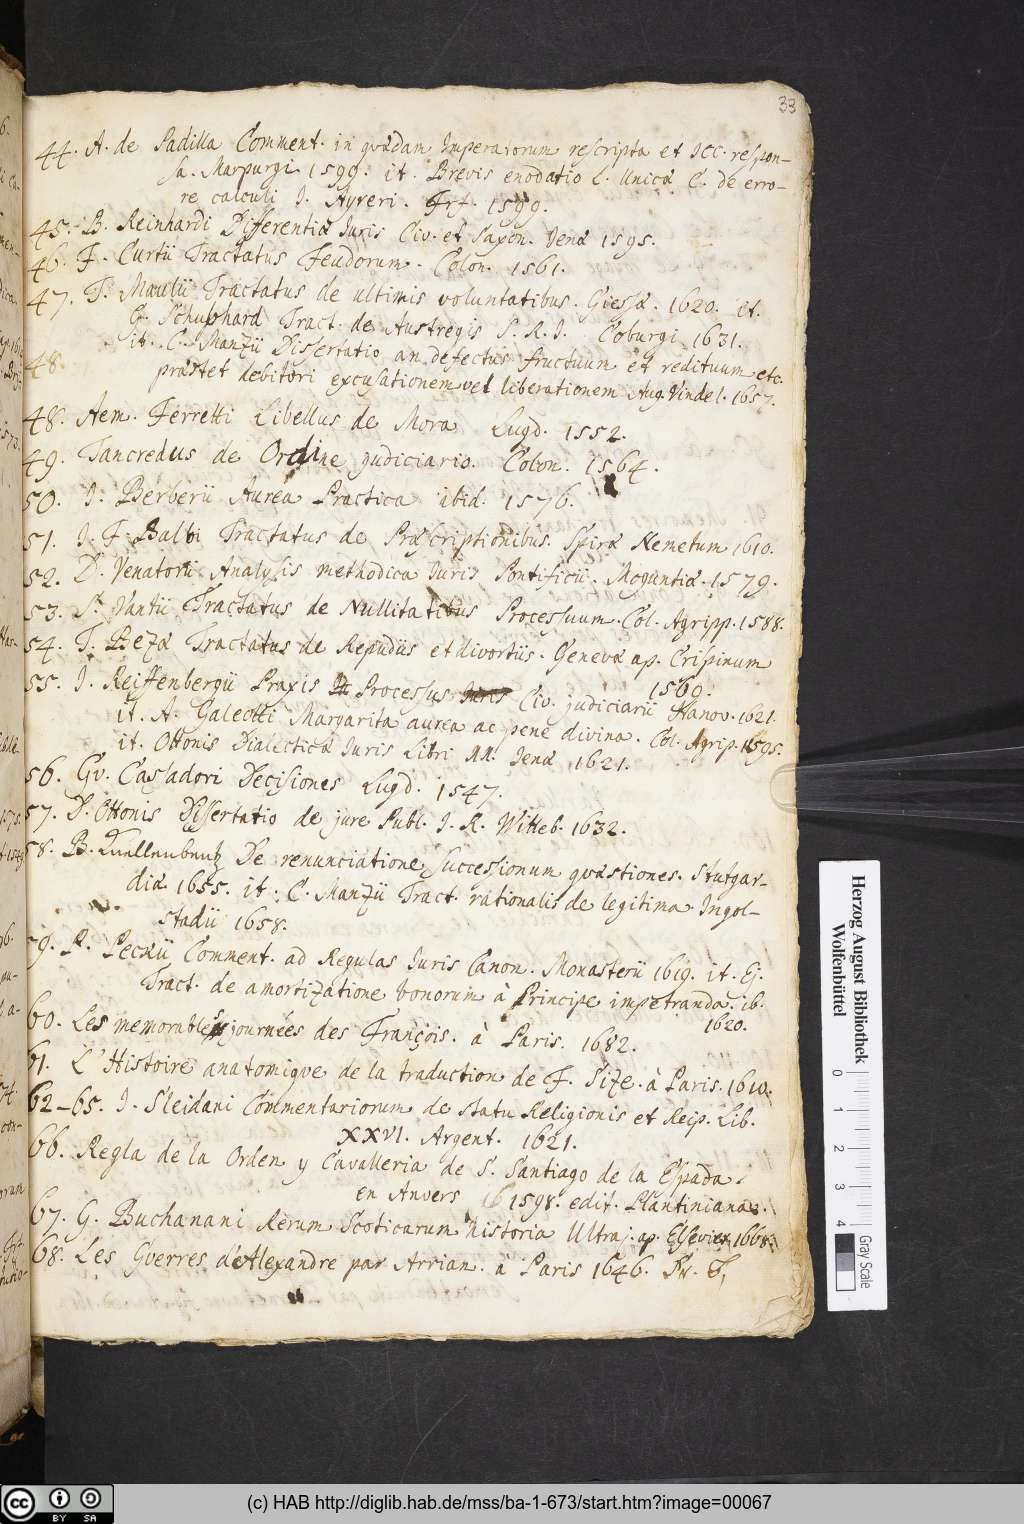 33
44. A. de Padilla Comment. in quædam Imperatorum rescripta et ICC. respon-
sa. Marpurgi 1599. it. Brevis enodatio L. Unicæ C. de erro-
re calculi J. Ayreri. Frf. 1599.
45. B. Reinhardi Differentiæ Juris Civ. et Saxon. Jenæ 1595.
46. F. Curtii Tractatus Feudorum. Colon. 1561.
47. T. Maulii Tractatus de ultimis voluntatibus. Giessæ. 1620. it.
G. Schubhard Tract. de Austregis S. R. I. Coburgi 1631.
it. C. Manzii Dissertatio an defectus fructuum et redituum etc.
48.
præstet debitori excusationem vel liberationem Aug. Vindel. 1657.
48. Aem. Ferretti Libellus de Mora Lugd. 1552.
49. Tancredus de Ordine judiciario. Colon. 1564.
50. J. Berberii Aurea Practica ibid. 1576.
51. J. F. Balbi Tractatus de Præscriptionibus. Spiræ Nemetum 1610.
52. D. Venatorii Analysis methodica Juris Pontificii. Moguntiæ. 1579.
53. S. Vantii Tractatus de Nullitatibus Processuum. Col. Agripp. 1588.
54. T. Bezæ Tractatus de Repudiis et divortiis. Genevæ ap. Crispinum
1569.
55. J. Reiffenbergii Praxis Processus Juris Civ. judiciarii Hanov. 1621.
it. A. Galeotti Margarita aurea ac pene divina. Col. Agrip. 1595.
it. Ottonis Dialecticæ Juris Libri III. Jenæ 1621.
56. Gv. Casadori Decisiones Lugd. 1547.
57. D. Ottonis Dissertatio de jure Publ. I. R. Witteb. 1632.
58. B. De renunciatione Successionum quæstiones. Stutgar-
diæ 1655. it. C. Manzii Tract. rationalis de legitima Ingol-
stadii 1658.
59. P. Peckii Comment. ad Regulas Juris Canon. Monasterii 1619. it. Ej.
Tract. de amortizatione bonorum à Principe impetranda. ib.
1620.
60. Les memorables journées des François. à Paris. 1682.
61. L'Histoire anatomique de la traduction de F. Size. à Paris. 1610.
62-65. J. Sleidani Commentariorum de statu Religionis et Reip. Lib.
XXVI. Argent. 1621.
66. Regla de la Orden y Cavalleria de S. Santiago de la Espada.
en Anvers 1598. edit. Plantiniana.
67. G. Buchanani Rerum Scoticarum historia Ultraj. ap. Elsevier 1668.
68. Les Guerres d'Alexandre par Arrian. à Paris 1646.
Herzog August Bibliothek
Wolfenbüttel
0 1 2 3 4
Gray Scale
cc BY SA
(c) HAB http://diglib.hab.de/mss/ba-1-673/start.htm?image=00067